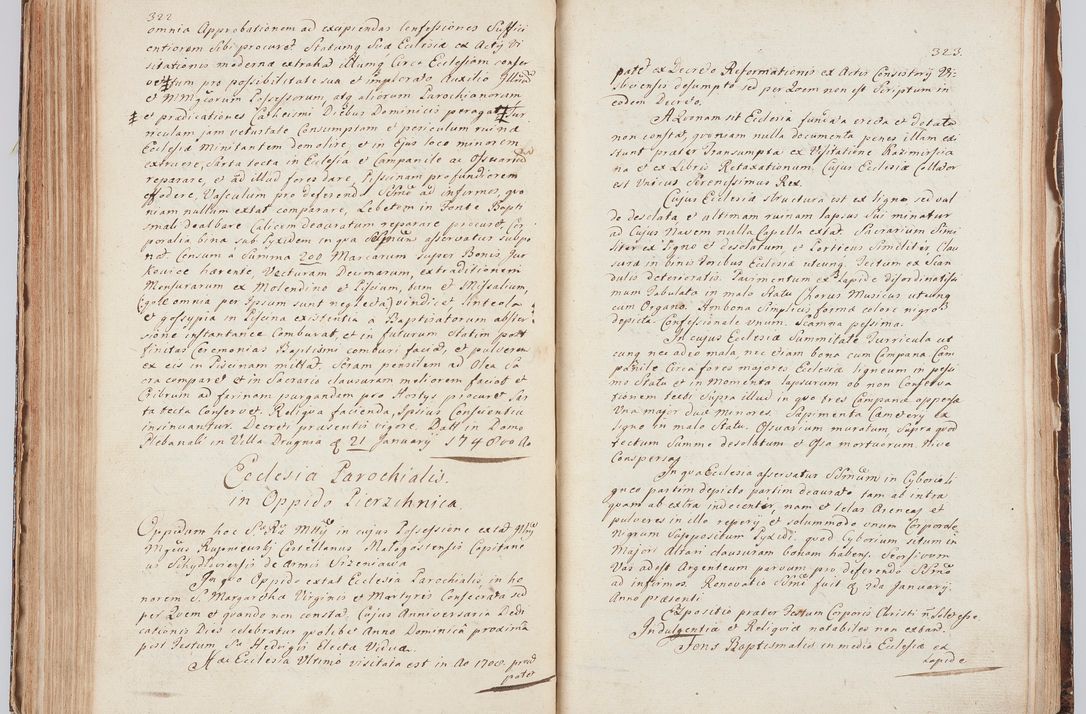 322
omnia Approbationem ad excipiendas Confessiones Suffici
entiorem sibi procuret Statumq Suæ Ecclesiæ ex Actis Vi
sitationis modernæ extrahat illumq Circa Ecclesiam conser
vet pro possibilitate sua et implorato Auxilio
et Mgcorum Possessorum atq aliorum Parochianorum
et prædicationes Cathecismi Diebus Dominicis peragat Tur
riculam jam vetustate Consumptam et periculum ruinæ
Ecclesiæ Minitantem demolire, et in Ejus loco minorem
extruere, Sarta tecta in Ecclesia et Campanile ac Ossuarium
reparare, et ad illud fores dare, Piscinam profundiorem
effodere, Vasculum pro deferendo SSmo ad infirmos, quo
niam nullum extat comparare, Lebetem in Fonte Bapti
smali Dealbare Calicem deauratum reparare procuret, Cor
poralia bona sub Pyxidem in qua SSmum asservatur subpo
nat. Censum a Summa 200 Marcarum super Bonis Jur
kovice hærente, Vecturam Decimarum, extraditionem
Mensurarum ex Molendino et Pisium, tum et Missalium,
(: qæ omnia per Ipsum sunt neglecta :) vindicet Linteola
et gossypia in Piscina existentia a Baptisatorum abster
sione instantanee Comburat, et in futurum Statim post
finitas Ceremonias Baptismi comburi faciat, et pulverem
ex eis in Piscinam mittat. Seram pensilem ad Olea Sa
cra comparet et in Sacrario clausuram meliorem faciat et
Cribrum ad farinam purgandam pro Hostijs procuret Sar
ta tecta Conservet. Reliqua facienda, Ipsius Conscientiæ
insinuantur. Decreti præsentis vigore. Datt in Domo
Plebanali in Villa Drugnia d 21 Januarij 1748vo Ao
Ecclesia Parochialis.
in Oppido Pierzchnica.
Oppidum hoc S. R. Mttis in cujus Possessione extat
Mgcus Kuprnewski Castellanus Malogostensis Capitane
us Schydloviensis de Armis
In quo Oppido extat Ecclesia Parochialis in ho
norem S. Margarethæ Virginis et Martyris Consecrata sed
per Quem et quando non constat. Cujus Anniversaria Dedi
cationis Dies celebratur quolibet Anno Dominica proxima
post Festum S. Hedvigis Electæ Viduæ.
Hæc Ecclesia Ultimo visitata est in Ao 1708. prout
patet
323.
patet ex Decreto Reformationis ex Actis Consistorij Vi
slicensis desumpto sed per Quem non est Scriptum in
eodem Decreto.
A Quonam sit Ecclesia fundata erecta et dotata
non constat, quoniam nulla documenta penes illam ex
stunt præter Transumpta ex Visitatione Radzimirscia
na et ex Libris Retaxationum. Cujus Ecclesiæ Collator
est Unicus Serenissimus Rex.
Cujus Ecclesiæ Structura est ex ligno, sed val
de desolata et ultimam ruinam lapsus sui minatur
ad Cujus Navem nulla Capella extat. Sacrarium Simi
liter ex Ligno et desolatum et Porticus Similiter. Clau
sura in omnibus foribus Ecclesiæ utcunq. Tectum ex Scan
dulis deterioratis. Pavimentum ex Lapide disordinatissi
mum Tabulata in malo Statu Chorus Musicus utcunq
cum Organo. Ambona Simplicis formæ colore nigro
depicta. Confessionale unum. Scamna pessima.
In cujus Ecclesiæ Summitate Turricula ut
cunq nec adeo mala, nec etiam bona cum Campana Cam
panile Circa fores majores Ecclesiæ ligneum in pessi
mo Statu et in Momento lapsurum ob non Conserva
tionem tecti Supra illud in quo tres Campanæ appensæ
Una major duæ Minores. Sæpimenta Cæmeterij ex
Ligno in malo Statu. Ossuarium muratum, Supra quod
tectum Summe desolatum et Ossa mortuorum Nive
Conspersa.
In qua Ecclesia asservatur SSmum in Cyborio li
gneo partim depicto partim deaurato tam ab intra
quam ab extra indecenter, nam et telas Araneas et
pulveres in illo reperij et solummodo unum Corporale
Nigrum Suppositum Pyxidi. quod Cyborium situm in
Majori Altari clausuram bonam habens. Seorsivum
Vas adest Argenteum parvum pro deferendo SSmo
ad infirmos. Renovatio SSmi fuit d 2da Januarij
Anno præsenti.
Expositio præter Festum Corporis Christi non solet esse.
Indulgentiæ et Reliquiæ notabiles non extant.
Fons Baptismalis in medio Ecclesiæ ex
Lapide